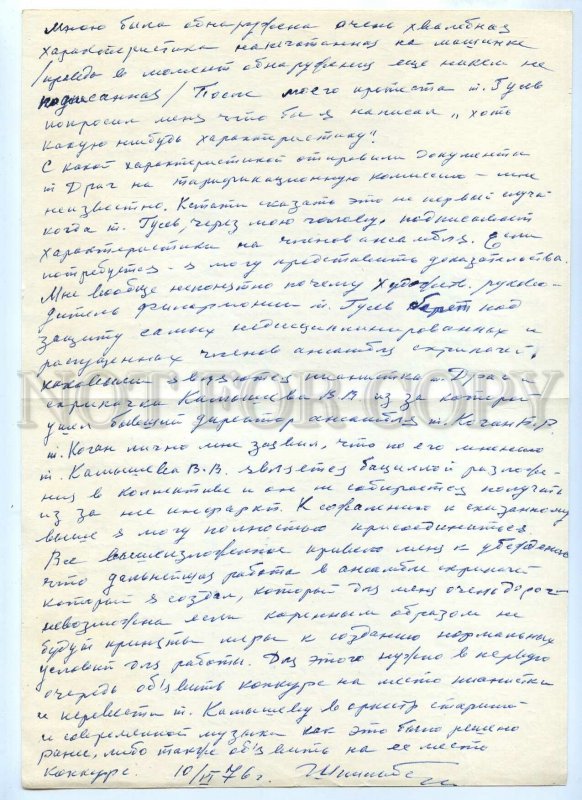 Мною была обнаружена очень хвалебная
характеристика напечатанная на машинке
/правда в момент обнаружения еще никем не
подписанная/ После моего протеста т. Гусев
попросил меня что бы я написал „хоть
какую нибудь характеристику".
С какой характеристикой отправили документы
т. Драч на тарификационную комиссию – мне
неизвестно. Кстати сказать это не первый случай
когда т. Гусев, через мою голову, подписывает
характеристики на членов ансамбля. Если
потребуется – я могу представить доказательства.
Мне вообще непонятно почему художеств. руково-
дитель филармонии т. Гусев берет под
защиту самых недисциплинированных и
распущенных членов ансамбля скрипачей,
каковыми являются пианистка т. Драч и
скрипачка Камышева В.В. из за которой
ушел бывший директор ансамбля т. Коган
т. Коган лично мне заявил, что по его мнению
т. Камышева В.В. является бациллой разложе-
ния в коллективе и он не собирается получить
из за нее инфаркт. К сожалению к сказанному
выше я могу полностью присоединиться.
Все вышеизложенное привело меня к убеждению
что дальнейшая работа в ансамбле скрипачей
который я создал, который для меня очень дорог –
невозможна если коренным образом не
будут приняты меры к созданию нормальных
условий для работы. Для этого нужно в первую
очередь объявить конкурс на место пианистки
и перевести т. Камышеву в оркестр старинно-
й современной музыки как это было решено
ранее, либо также объявить на ее место
конкурс. 10/VI 76 г.
NOT FOR COPY